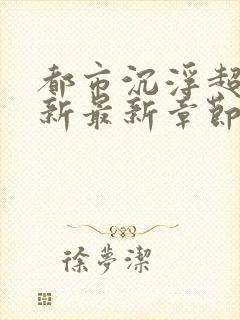 都市沉浮超
新最新章節
徐夢潔